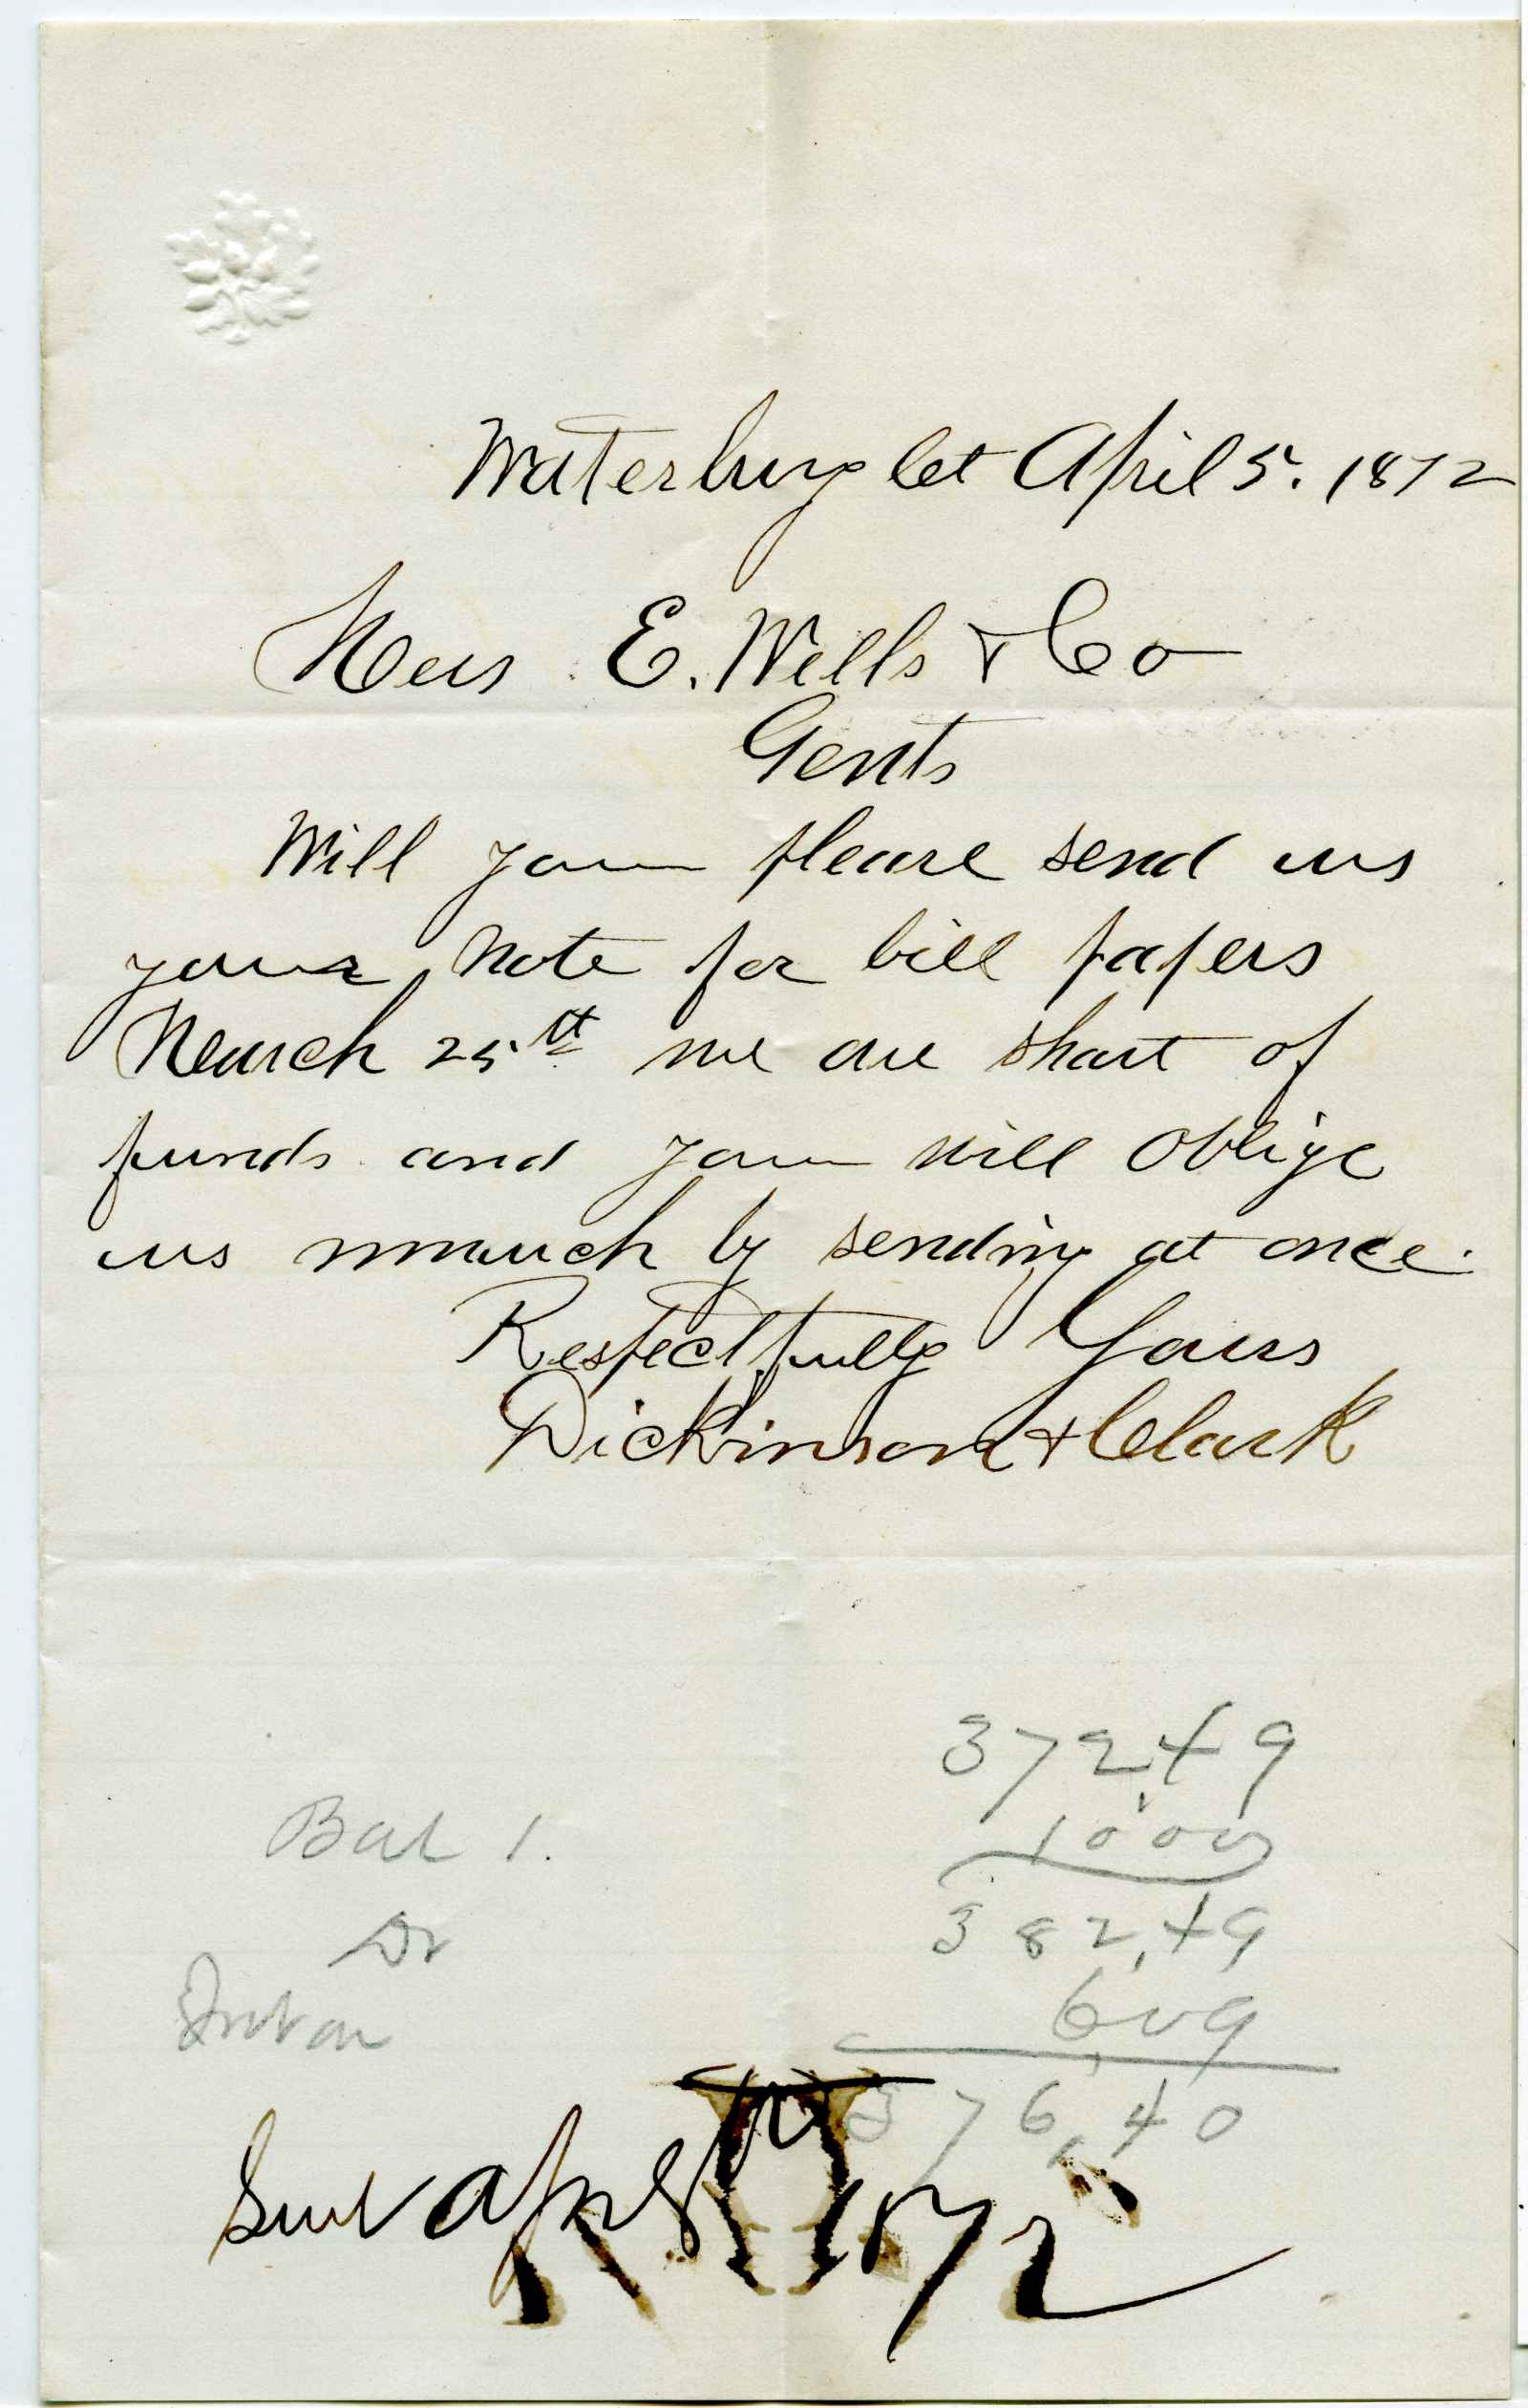 Waterbury Ct April 5. 1872
Mess E. Wells & Co
Gents
Will you please send us
your note for bill papers
March 25th we are short of
funds and you will oblige
us much by sending at once.
Respectfully Yours
Dickinson & Clark
372,49
10 00
382,49
6,09
376,40
Bal 1.
Dr
Sent Apr 1872